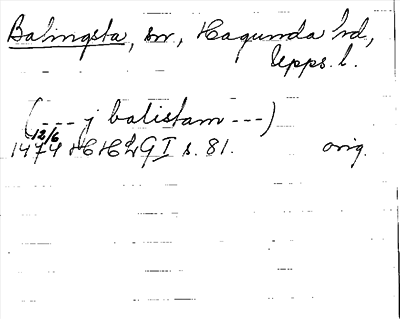 Balingsta, sn, Hagunda hd,
Upps. l.
(--- j balistam ---)
12/6
1474 HHLG I s. 81. orig.